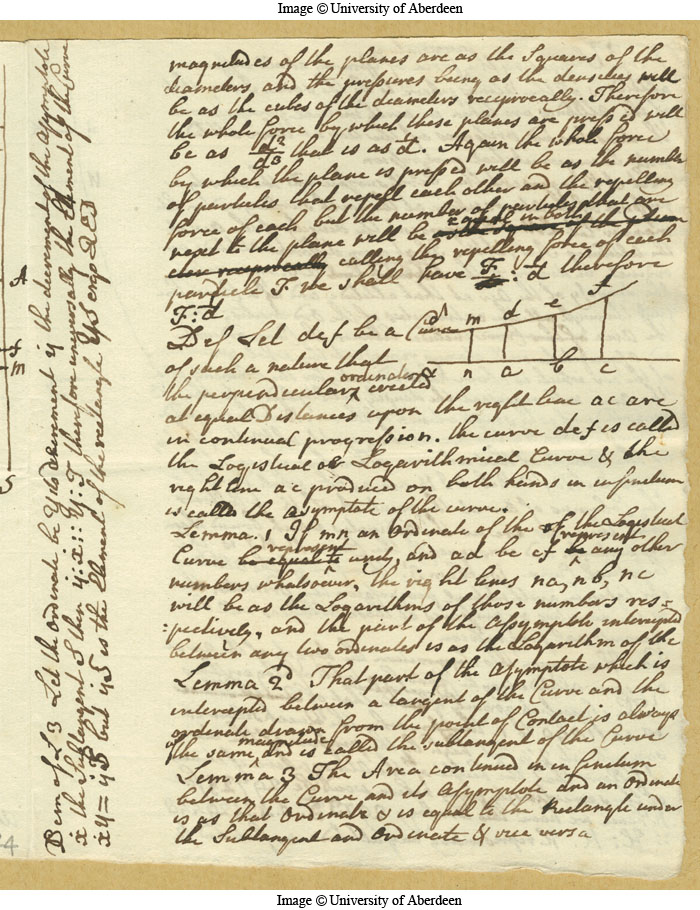 Image © University of Aberdeen
magnitudes of the planes are as the Squares of the
diameters and the pressures being as the densities will
be as the cubes of the diameters reciprocally. Therefore
the whole force by which these planes are press'd will
be as d²/d³ that is as 1/d. Again the whole force
by which the plane is press'd will be as the number
of particles that repell each other and the repelling
force of each but the number of particles that are
next to the plane will be equal in both
calling the repelling force of each
particle F we shall have F : 1/d therefore
F : 1/d
Def Let def be a Curve
m d e f
of such a nature that
n a b c
the perpendicular ordinates erected
at equal Distances upon the right line ac are
in continual progression. the curve def is called
the Logistical or Logarithmical Curve & the
right line ac produced on both hands in infinitum
is called the asymptote of the curve.
Lemma. 1 If mn an Ordinate of the of the Logistical
Curve be equal to represent unity, and ad be ef be represent any other
numbers whatsoever, the right lines na, nb, nc
will be as the Logarithms of those numbers res=
=pectively, and the part of the Assymptote intercepted
between any two ordinates is as the Logarithm of the
Lemma 2d That part of the Asymptote which is
intercepted between a tangent of the Curve and the
ordinate drawn from the point of Contact is always
of the same magnitude and is called the subtangent of the Curve
Lemma 3 The Area continued in infinitum
between the Curve and its Asymptote and an Ordinate
is as that Ordinate & is equal to the Rectangle under
the Subtangent and Ordinate & vice versa
Dem of L 3 Let the Ordinate be y its decrement ẏ the decrement of the Asymptote
ẋ the Subtangent S then ẏ : ẋ :: y : S therefore universally the Element of the Curve
ẋy = ẏS but ẏS is the Element of the rectangle yS ergo QED
A
f
m
S
4
Image © University of Aberdeen